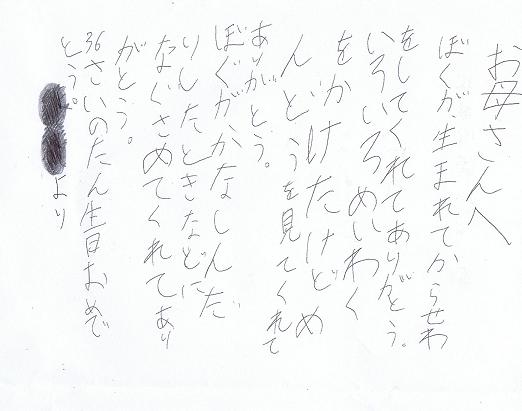 お母さんへ
ぼくが生まれてからせわ
をしてくれてありがとう。
いろいろめいわく
をかけたけどめ
んどうを見てくれて
ありがとう。
ぼくがかなしんだ
りしたときなどに
なぐさめてくれてあり
がとう。
36さいのたん生日おめで
とう。
より